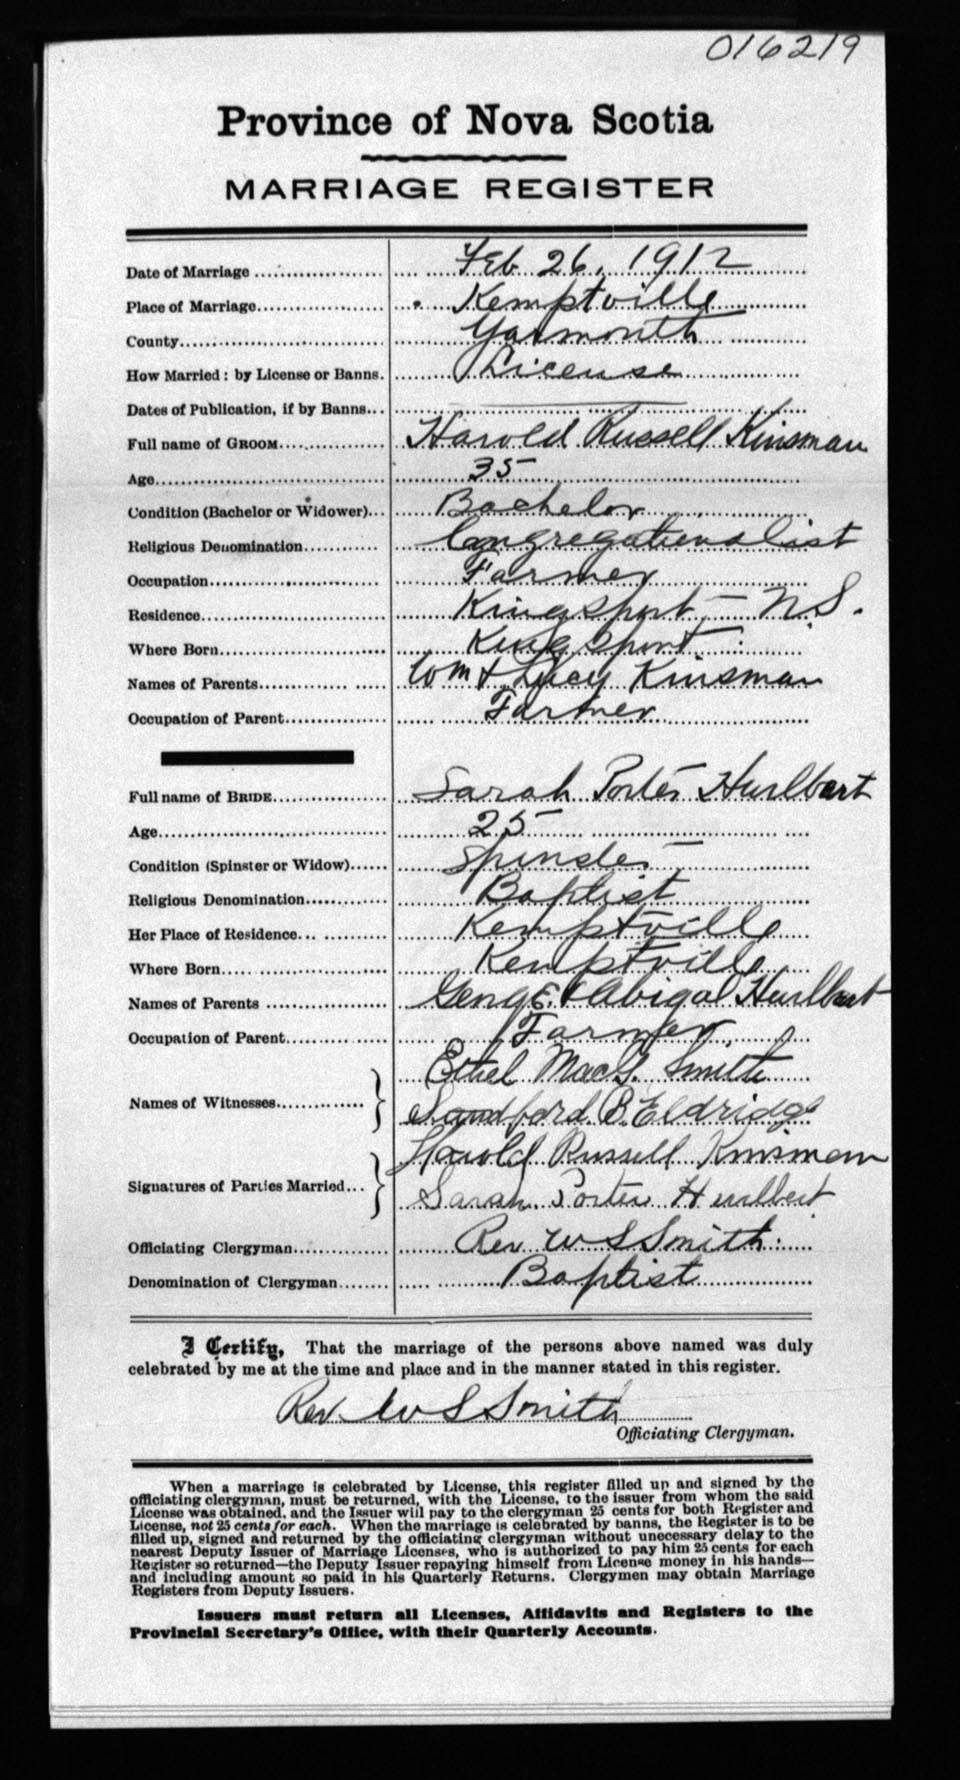 016219
Province of Nova Scotia
MARRIAGE REGISTER
Date of Marriage Feb. 26, 1912
Place of Marriage Kemptville
County Yarmouth
How Married: by License or Banns. License
Dates of Publication, if by Banns
Full name of GROOM Harold Russell Kinsman
Age 35
Condition (Bachelor or Widower) Bachelor
Religious Denomination Congregationalist
Occupation Farmer
Residence Kingsport - N.S.
Where Born Kingsport
Names of Parents Wm & Lucy Kinsman
Occupation of Parent Farmer
Full name of BRIDE Sarah Porter Hurlbert
Age 25
Condition (Spinster or Widow) Spinster
Religious Denomination Baptist
Her Place of Residence Kemptville
Where Born Kemptville
Names of Parents & Abigal Hurlbert
Occupation of Parent Farmer
Ethel MacG. Smith
Names of Witnesses
Sandford B. Eldridge
Harold Russell Kinsman
Signatures of Parties Married
Sarah Porter Hurlbert
Officiating Clergyman Rev W S Smith
Denomination of Clergyman Baptist
I Certify, That the marriage of the persons above named was duly
celebrated by me at the time and place and in the manner stated in this register.
Rev. W S Smith
Officiating Clergyman.
When a marriage is celebrated by License, this register filled up and signed by the
officiating clergyman, must be returned, with the License, to the issuer from whom the said
License was obtained, and the Issuer will pay to the clergyman 25 cents for both Register and
License, not 25 cents for each. When the marriage is celebrated by banns, the Register is to be
filled up, signed and returned by the officiating clergyman without unnecessary delay to the
nearest Deputy Issuer of Marriage Licenses, who is authorized to pay him 25 cents for each
Register so returned—the Deputy Issuer repaying himself from License money in his hands—
and including amount so paid in his Quarterly Returns. Clergymen may obtain Marriage
Registers from Deputy Issuers.
Issuers must return all Licenses, Affidavits and Registers to the
Provincial Secretary's Office, with their Quarterly Accounts.